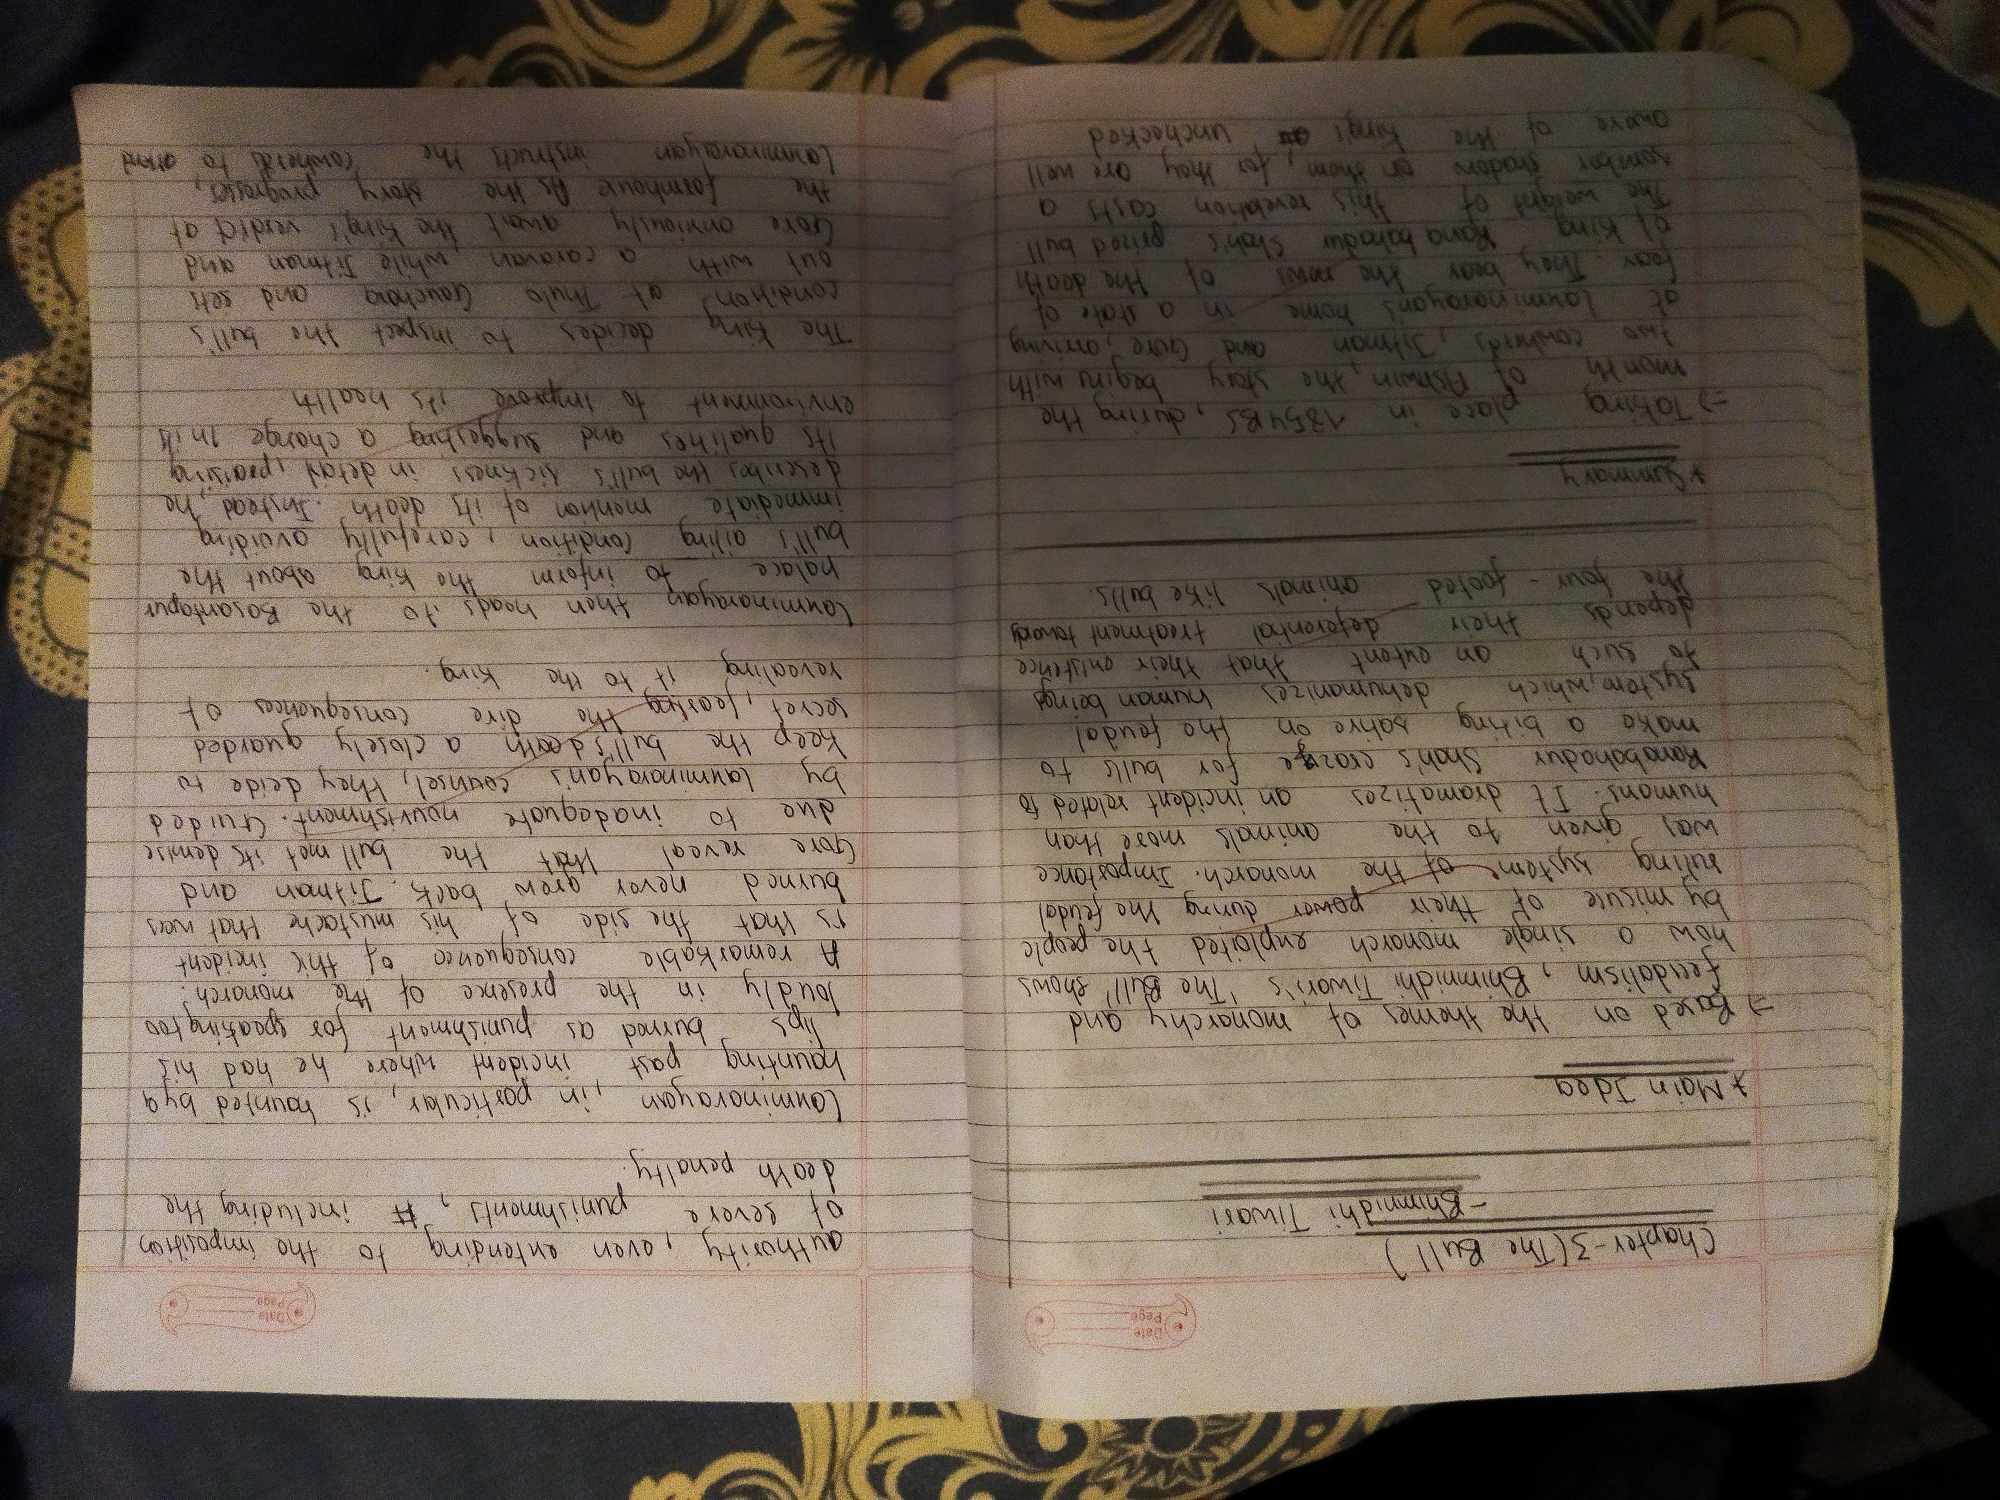 Date
Page
Chapter-3(The Bull)
-Bhimnidhi Tiwari
* Main Idea
=> Based on the themes of monarchy and
feudalism, Bhimnidhi Tiwari's 'The Bull' shows
how a single monarch exploited the people
by misuse of their power during the feudal
ruling system of the monarch. Importance
was given to the animals more than
humans. It dramatizes an incident related to
Ranabahadur Shah's craze for bulls to
make a biting satire on the feudal
system, which dehumanizes human beings
to such an extent that their existence
depends their deferential treatment towards
the four-footed animals like bulls.
* Summary
=> Taking place in 1854BS, during the
month of Ashwin, the story begins with
two cowherds, Jitman and Gore, arriving
at laxminarayan's home in a state of
fear. They bear the news of the death
of King Rana bahadur Shah's prized bull
The weight of this revelation casts a
somber shadow on them, for they are well
aware of the King's unchecked
Date
Page
authority, even extending to the imposition
of severe punishments, including the
death penalty.
Laxminarayan, in particular, is haunted by a
haunting past incident where he had his
lips burned as punishment for speaking too
loudly in the presence of the monarch.
A remarkable consequence of this incident
is that the side of his mustache that was
burned never grew back. Jitman and
Gore reveal that the bull met its demise
due to inadequate nourishment. Guided
by laxminarayan's counsel, they deide to
keep the bull's death a closely guarded
secret, fearing the dire consequences of
revealing it to the King.
Laxminarayan then heads to the Basantapur
palace to inform the King about the
bull's ailing condition, carefully avoiding
immediate mention of its death. Instead, he
describes the bull's sickness in detail, praising
its qualities and suggesting a change in its
environment to improve its health
The King decides to inspect the bull's
condition at Thulo Gauchara and sets
out with a caravan while Jitman and
Gore anxiously await the King's verdict at
the farmhouse As the story progresses,
Laxminarayan instructs the cowherds to attend